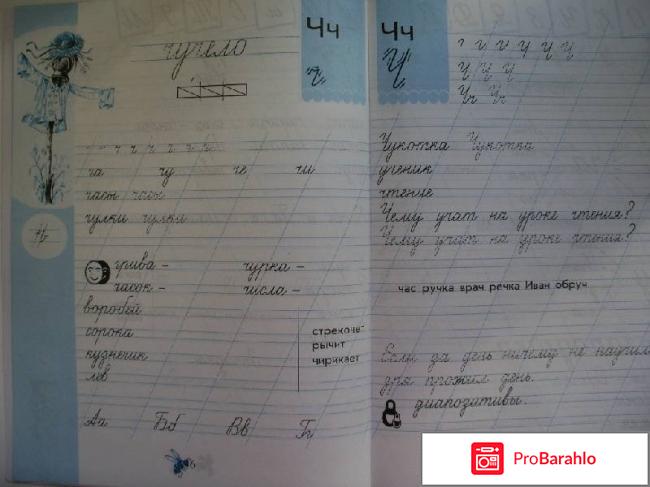 чучело
Чч
ч
ч ч ч ч ч ч
ча чу че чи
часы часы
чулки чулки
грива – чурка –
часок – числа –
воробей
сорока
кузнечик
лев
стрекоче
рычит
чирикает
Аа Бб Вв Гг
Чч
Ч
Чукотка Чукотка
ученик
чтение
Чему учат на уроке чтения?
Чему учат на уроке чтения?
час ручка врач речка Иван обруч
Если за день ничему не научил
зря прожил день.
диапозитивы.
ProBarahlo